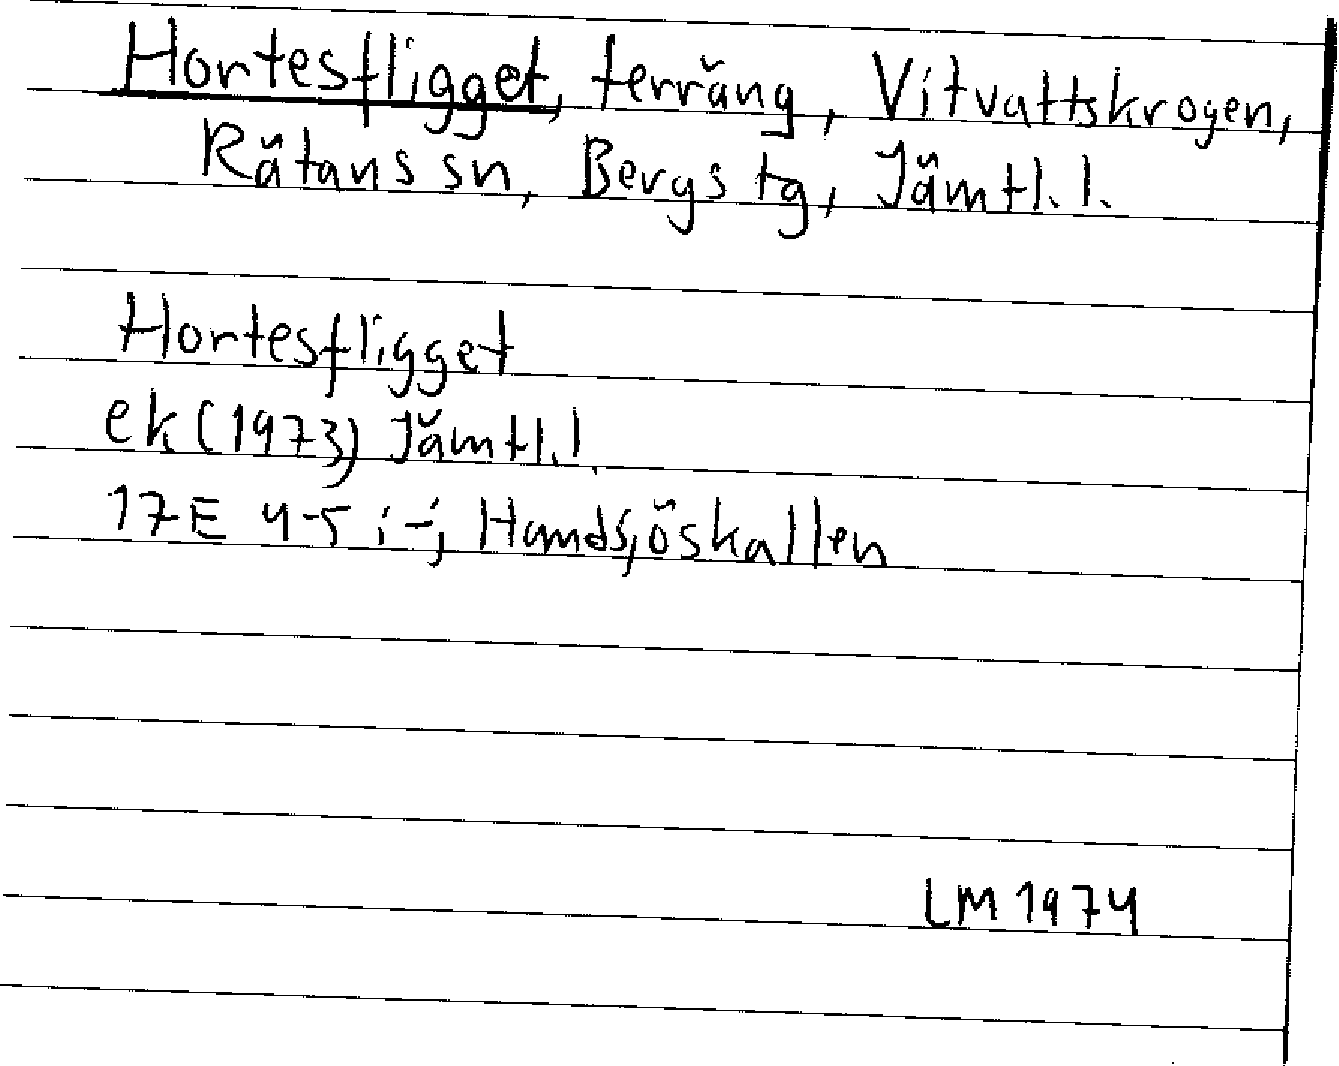 Hortesfligget, terräng, Vitvattskrogen,
Rätans sn, Bergs tg, Jämtl. l.
Hortesfligget
ek (1973) Jämtl. l.
17E 4-5 i-j, Handsjöskallen
LM 1974